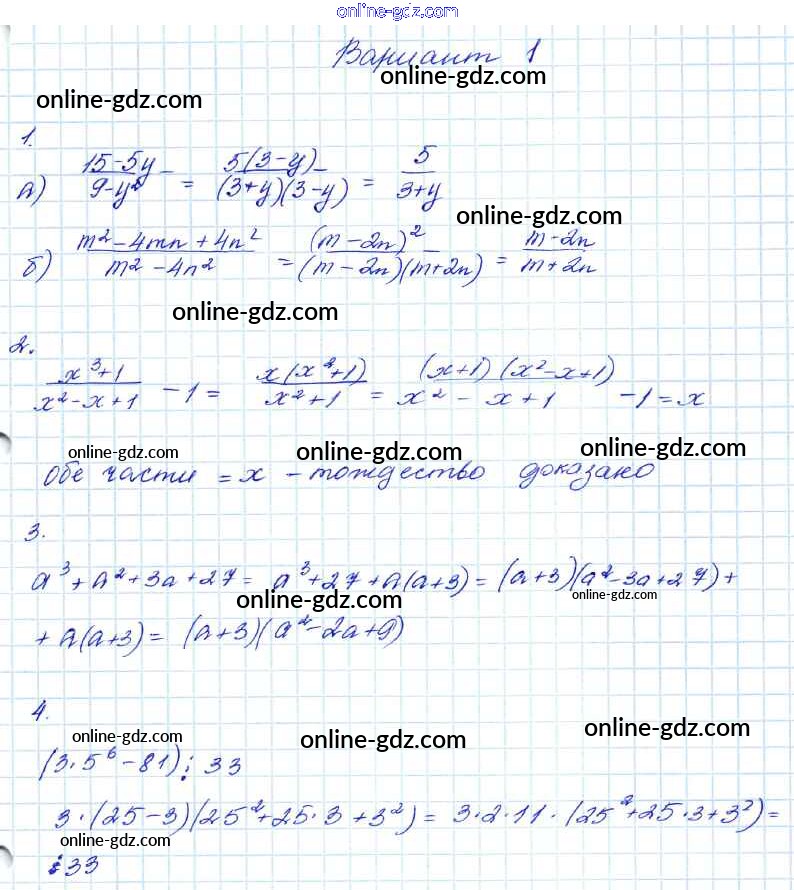 online-gdz.com
Вариант 1
online-gdz.com
online-gdz.com
1.
а) 15-5y / 9-y² = 5(3-y) / (3+y)(3-y) = 5 / 3+y
online-gdz.com
б) m²-4mn+4n² / m²-4n² = (m-2n)² / (m-2n)(m+2n) = m-2n / m+2n
online-gdz.com
2.
x³+1 / x²-x+1 -1 = x(x²+1) / x²+1 = (x+1)(x²-x+1) / x²-x+1 -1 = x
online-gdz.com online-gdz.com online-gdz.com
Обе части = x - тождество доказано
3.
a³+a²+3a+27 = a³+27+a(a+3) = (a+3)(a²-3a+27)+
online-gdz.com online-gdz.com
+a(a+3) = (a+3)(a²-2a+9)
4.
online-gdz.com online-gdz.com online-gdz.com
(3·5⁶-81) ⋮ 33
3·(25-3)(25²+25·3+3²) = 3·2·11·(25²+25·3+3²) =
⋮ 33